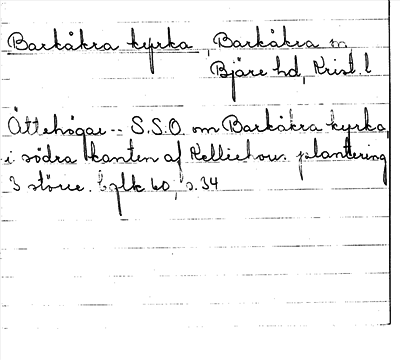 Barkåkra kyrka, Barkåkra sn,
Bjäre hd, Krist. l
Ättehögar -- S.S.O. om Barkåkra kyrka,
i södra kanten af plantering
3 större. 60, s. 34